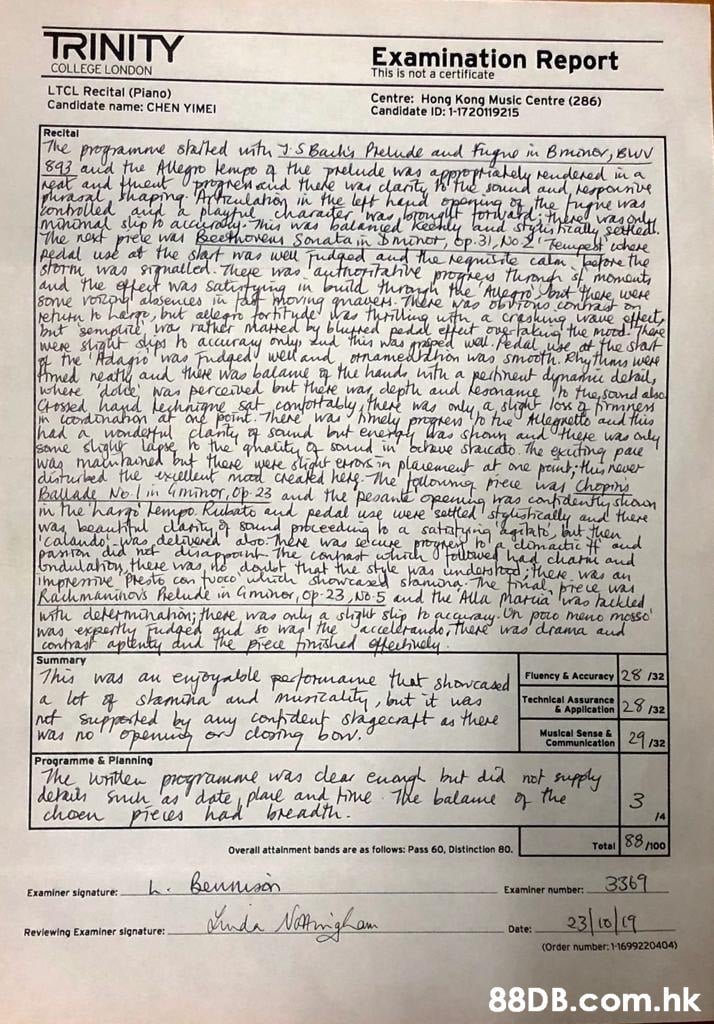 TRINITY
COLLEGE LONDON
Examination Report
This is not a certificate
LTCL Recital (Piano)
Candidate name: CHEN YIMEI
Centre: Hong Kong Music Centre (286)
Candidate ID: 1-1720119215
Recital
The programme started with J.S Bach's Prelude and Fugue in B minor, BWV
893 and the Allegro tempo of the prelude was appropriately rendered in a
neat and fluent progress and there was clarity to the sound and responsive
phrasal shaping. Articulation in the left hand opening of the fugue was
controlled and a playful character was brought forward; there was only
minimal slip to accuracy. This was balanced keenly and stylistically settled.
The next piece was Beethovens Sonata in D minor, Op.31, No.2 'Tempest' where
pedal use at the start was well judged and the requisite calm before the
storm was signalled. There was authoritative progress through sf moments
and the effect was satisfying in build through the 'Allegro' but there were
some voicing absences in fast moving quavers. There was obvious contrast on
return to largo, but allegro fortitude was thrilling with a crashing wave effect,
but 'semplice' was rather marred by blurred pedal effect overtaking the mood. There
were slight slips to accuracy only and this was well. Pedal use at the start
of the 'Adagio' was judged well and ornamentation was smooth. Rhythms were
timed neatly and there was balance of the hands with a pertinent dynamic detail,
where 'dolce' was perceived but there was depth and resonance to the sound also.
Crossed hand technique sat comfortably, there was only a slight loss of firmness
in coordination at one point. There was timely progress to the 'Allegretto' and this
had a wonderful clarity of sound but energy was shown and there was only
some slight lapse to the quality of sound in octave staccato. The exciting pace
was maintained but there were slight errors in placement at one point; this never
disturbed the excellent mood created here. The following piece was Chopin's
Ballade No.1 in G minor, Op.23 and the pesante opening was confidently shown
in the 'largo' tempo. Rubato and pedal use were settled stylistically and there
was beautiful clarity of sound proceeding to a satisfying agitato, but then
'calando' was delivered also. There was secure progress to a climactic ff and
passion did not disappoint. The contrast which followed had charm and
undulation, there was no doubt that the style was understood; there was an
impressive 'Presto con fuoco' which showcased stamina. The final piece was
Rachmaninovs Prelude in G minor, op.23, No.5 and the 'Alla Marcia' was tackled
with determination; there was only a slight slip to accuracy. Un poco meno mosso'
was expertly judged and so was the 'accelerando', there was drama and
contrast aplenty and the piece finished effectively.
Summary
This was an enjoyable performance that showcased
a lot of stamina and musicality, but it was
not supported by any confident stagecraft as there
was no opening or closing bow.
Fluency & Accuracy 28 /32
Technical Assurance & Application 28 /32
Musical Sense & Communication 29 /32
Programme & Planning
The written programme was clear enough but did not supply
details such as date, place and time. The balance of the
choen pieces had breadth.
3 /4
Overall attainment bands are as follows: Pass 60, Distinction 80.
Total 88 /100
Examiner signature: h. Bennison
Examiner number: 3369
Reviewing Examiner signature: Linda Nottingham
Date: 23/10/19
(Order number: 1-1699220404)
88DB.com.hk